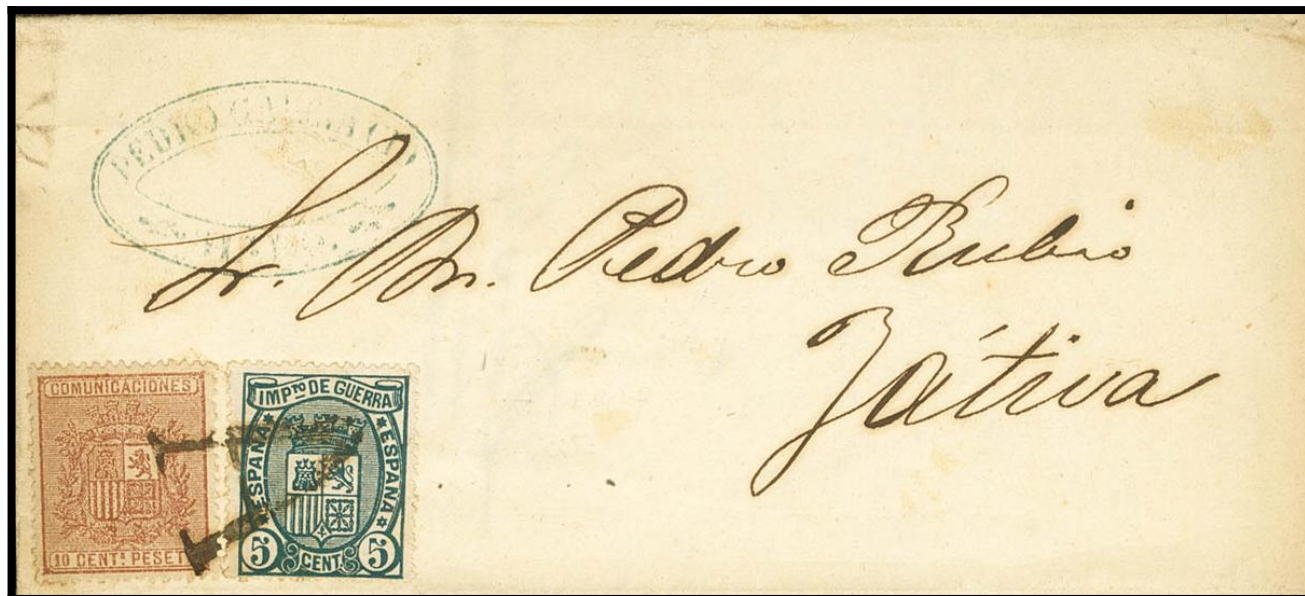 PEDRO
Sr. Dn. Pedro Rubio
Játiva
COMUNICACIONES
10 CENT.s PESETA
IMP.to DE GUERRA
ESPAÑA
ESPAÑA
5 CENT. 5